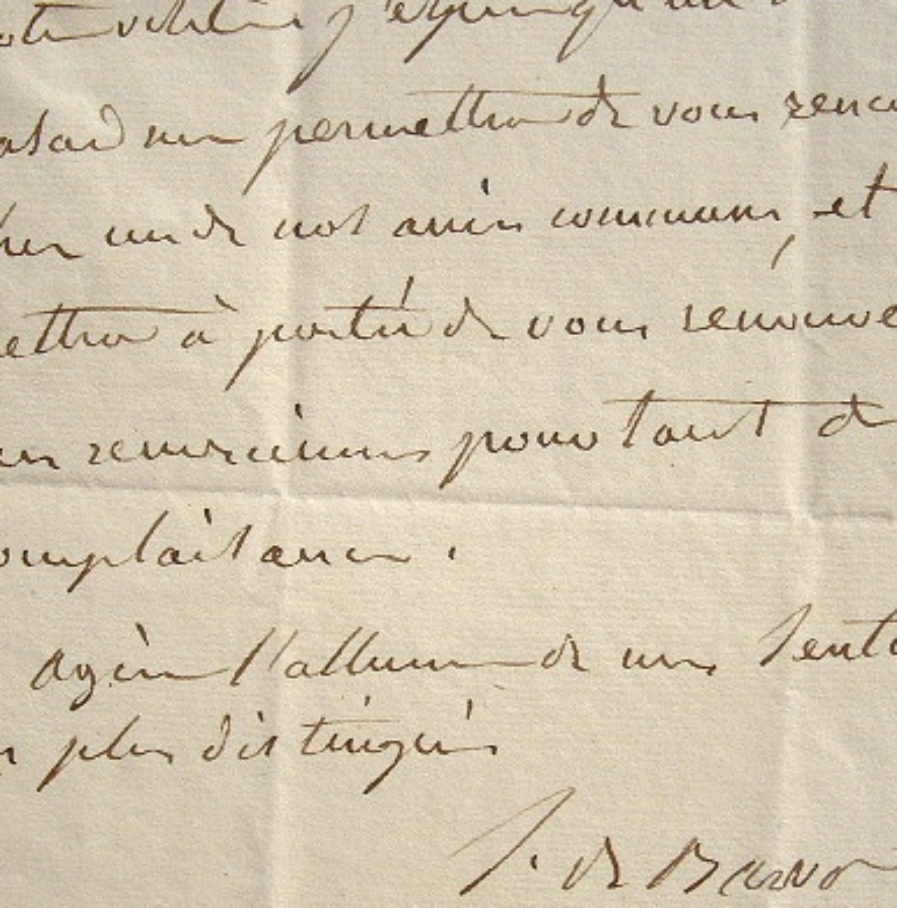 j'espère qu'un
me permettra de vous renc
un de nos amis communs, et
ettra à portée de vous renouve
remerciemens pour tant de
omplaisance.
agréer l'assurance de mes senti
plus distingués
J. de